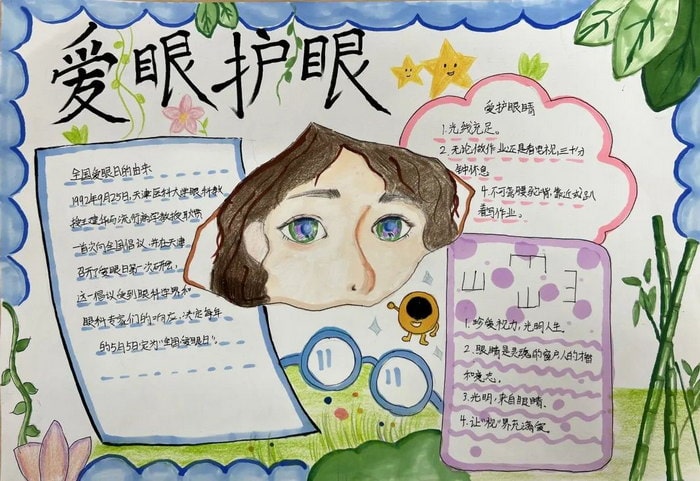 爱眼护眼
全国爱眼日的由来
1992年9月25日,天津医科大学眼科教
授王延华与流行病学教授耿贯
一首次向全国倡议,并在天津
召开了爱眼日第一次研讨,
这一倡议受到眼科学界和
眼科专家们的响应,决定每年
的5月5日定为“全国爱眼日”
爱护眼睛
1.光线充足。
2.无论做作业还是看电视,三十分
钟休息
4.不可弯腰驼背,靠近或趴
着写作业。
山 山
1.珍爱视力,光明人生
2.眼睛是灵魂的窗户人的
和意志。
3.光明,来自眼睛。
4.让“视”界充满爱